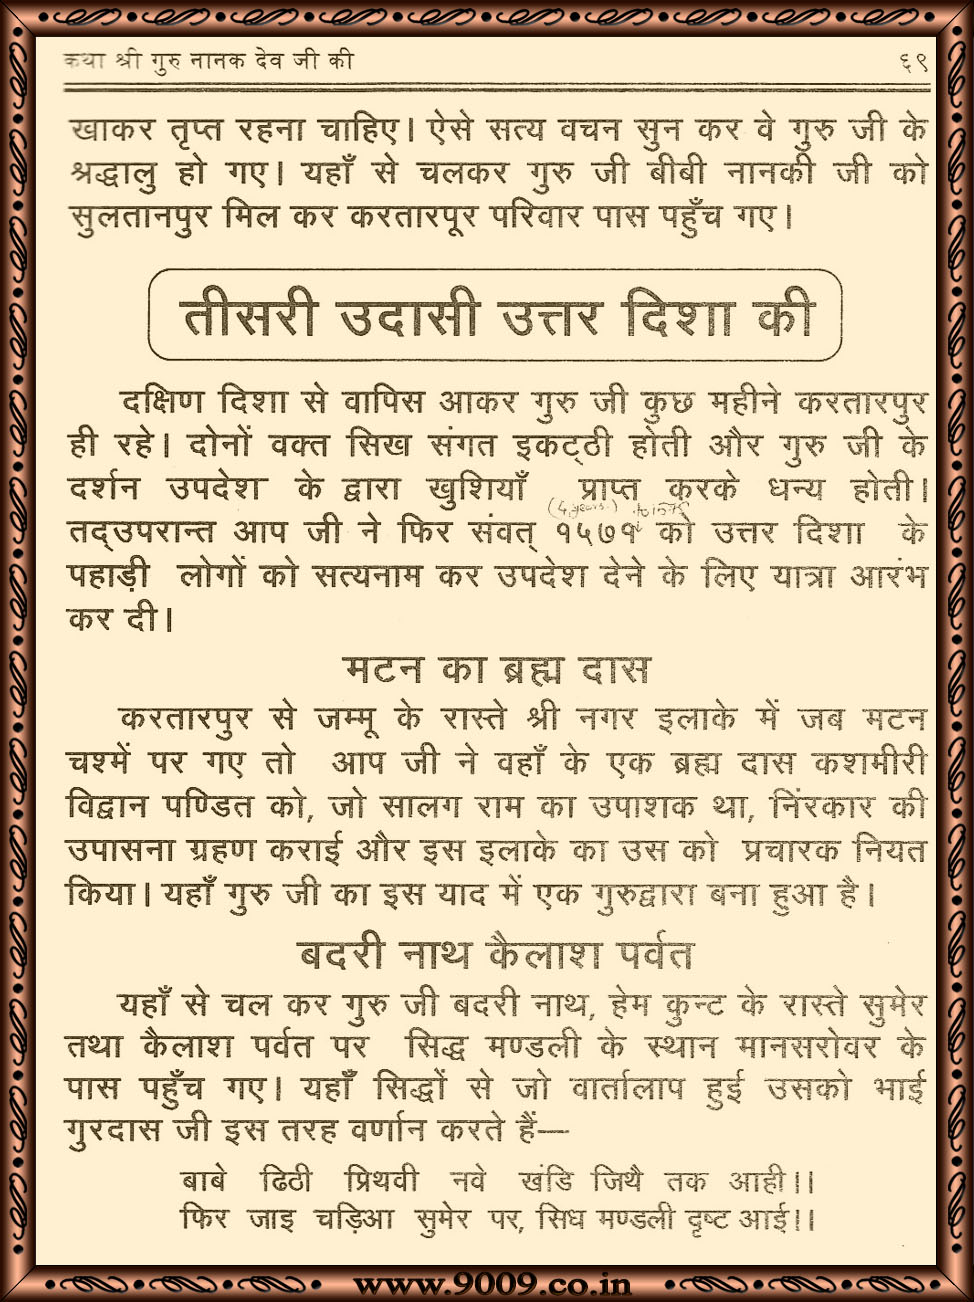 कथा श्री गुरु नानक देव जी की ६९
खाकर तृप्त रहना चाहिए। ऐसे सत्य वचन सुन कर वे गुरु जी के
श्रद्धालु हो गए। यहाँ से चलकर गुरु जी बीबी नानकी जी को
सुलतानपुर मिल कर करतारपूर परिवार पास पहुँच गए।
तीसरी उदासी उत्तर दिशा की
दक्षिण दिशा से वापिस आकर गुरु जी कुछ महीने करतारपुर
ही रहे। दोनों वक्त सिख संगत इकट्ठी होती और गुरु जी के
दर्शन उपदेश के द्वारा खुशियाँ प्राप्त करके धन्य होती।
(4 years.) to 1575
तद्उपरान्त आप जी ने फिर संवत् १५७१ को उत्तर दिशा के
पहाड़ी लोगों को सत्यनाम कर उपदेश देने के लिए यात्रा आरंभ
कर दी।
मटन का ब्रह्म दास
करतारपुर से जम्मू के रास्ते श्री नगर इलाके में जब मटन
चश्में पर गए तो आप जी ने वहाँ के एक ब्रह्म दास कशमीरी
विद्वान पण्डित को, जो सालग राम का उपाशक था, निंरकार की
उपासना ग्रहण कराई और इस इलाके का उस को प्रचारक नियत
किया। यहाँ गुरु जी का इस याद में एक गुरुद्वारा बना हुआ है।
बदरी नाथ कैलाश पर्वत
यहाँ से चल कर गुरु जी बदरी नाथ, हेम कुन्ट के रास्ते सुमेर
तथा कैलाश पर्वत पर सिद्ध मण्डली के स्थान मानसरोवर के
पास पहुँच गए। यहाँ सिद्धों से जो वार्तालाप हुई उसको भाई
गुरदास जी इस तरह वर्णान करते हैं—
बाबे ढिठी प्रिथवी नवे खंडि जिथै तक आही।।
फिर जाइ चड़िआ सुमेर पर, सिध मण्डली दृष्ट आई।।
www.9009.co.in